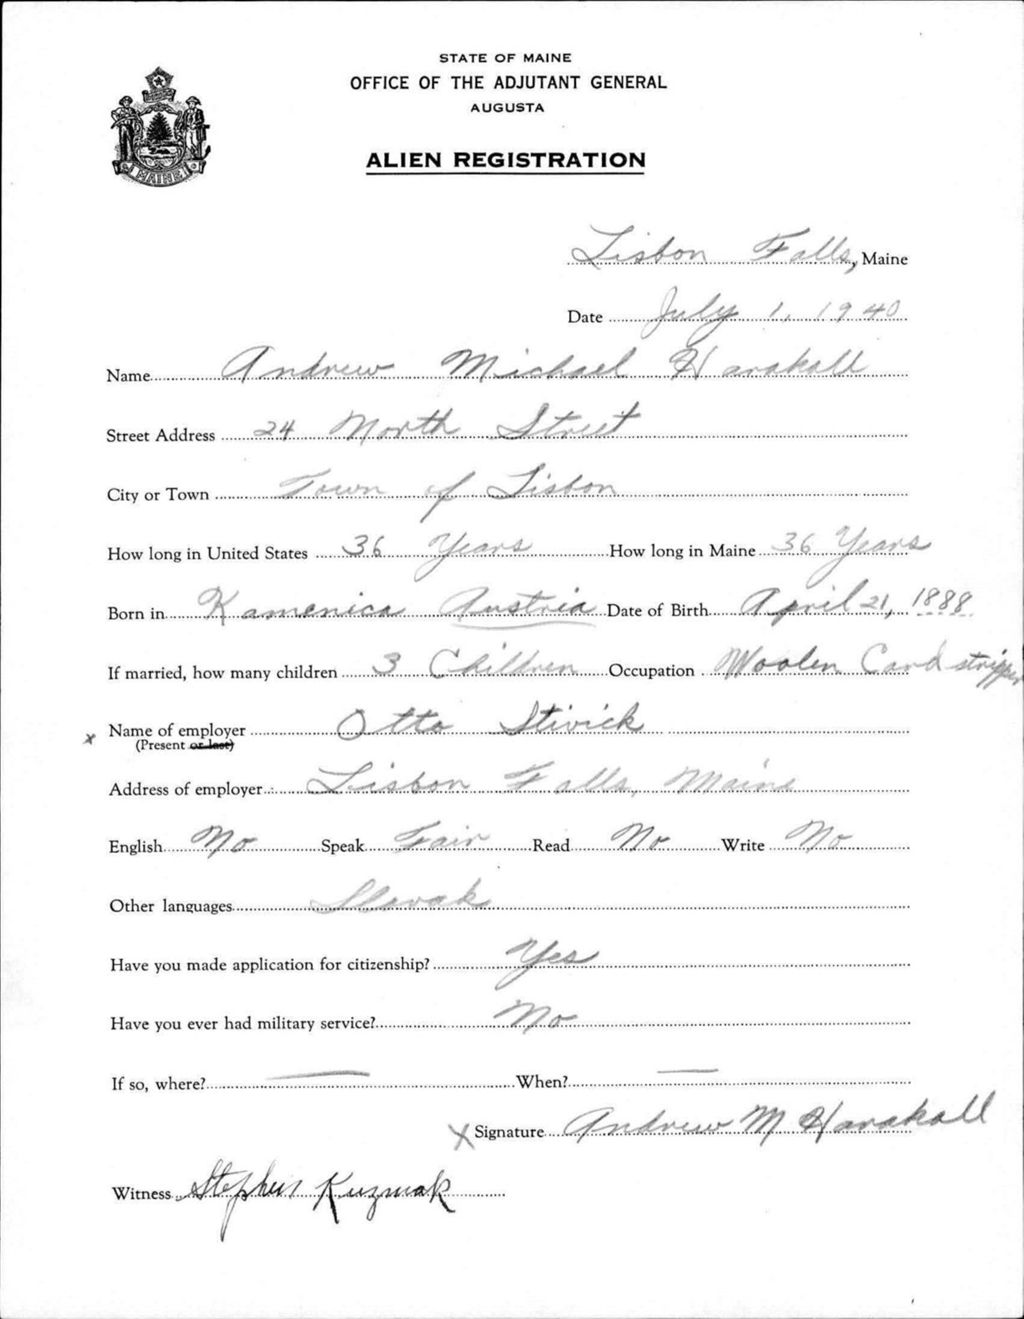 STATE OF MAINE
OFFICE OF THE ADJUTANT GENERAL
AUGUSTA
MAINE
ALIEN REGISTRATION
Lisbon Falls, Maine
Date July 1, 1940
Name Andrew Michael Harakall
Street Address 24 North Street
City or Town Town of Lisbon
How long in United States 36 Years How long in Maine 36 Years
Born in Kamenica Austria Date of Birth April 21, 1888
If married, how many children 3 Children Occupation Woolen Card stripper
x Name of employer Otto Stivick
(Present or last)
Address of employer Lisbon Falls, Maine
English No Speak Fair Read No Write No
Other languages Slovak
Have you made application for citizenship? Yes
Have you ever had military service? No
If so, where? — When? —
X Signature Andrew M Harakall
Witness Stephen Kuzmak